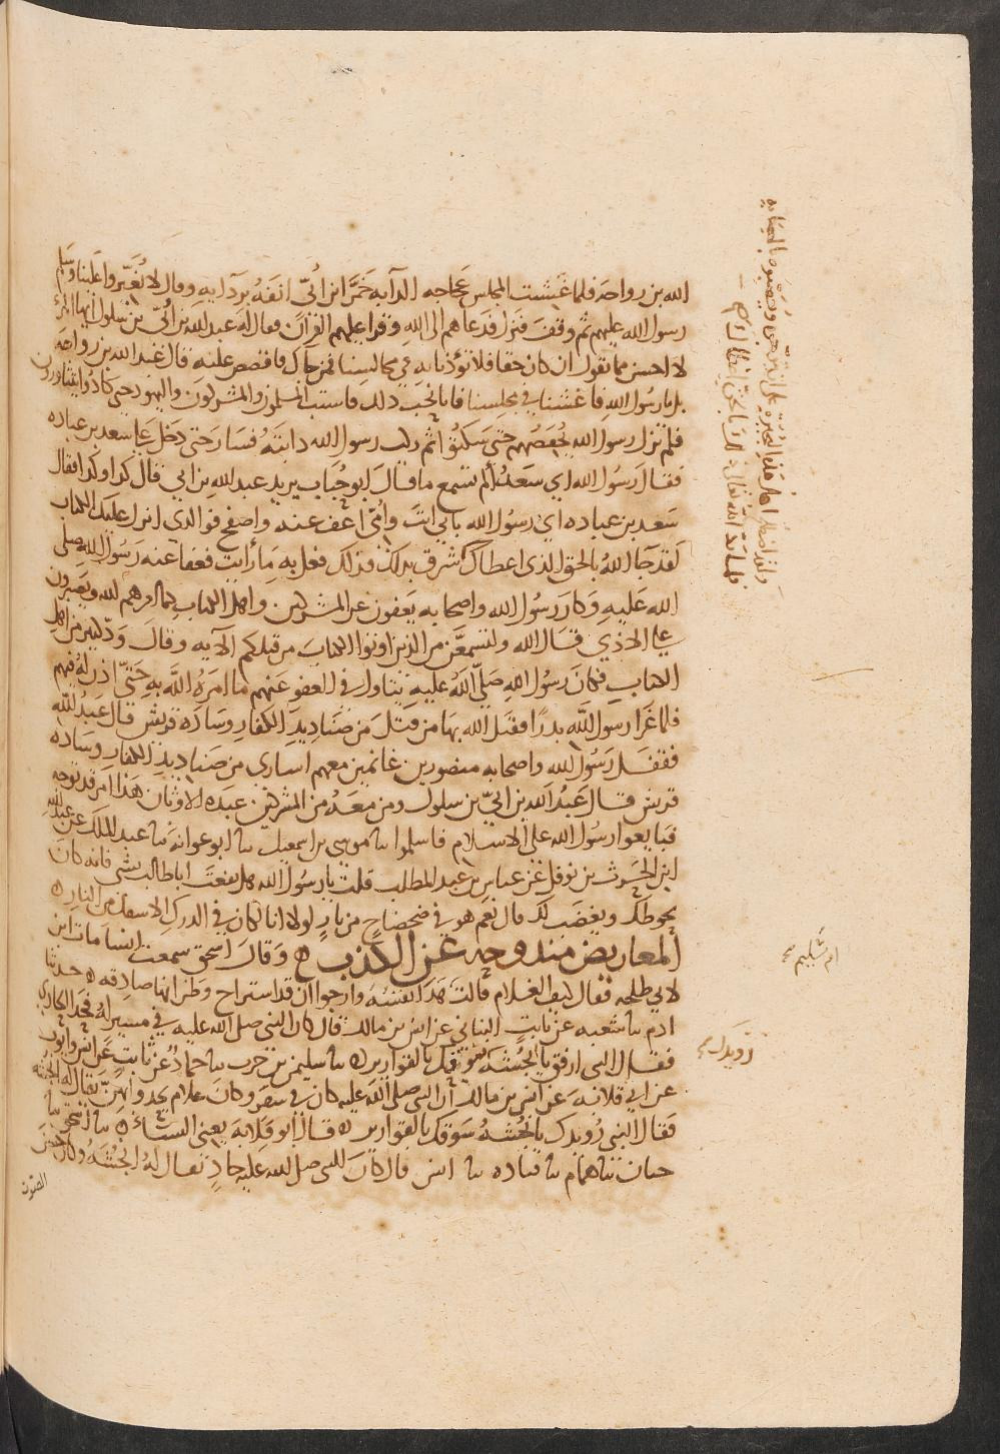 الله بن رواحة فلما غشيت المجلس عجاجه الدابه خمر ابن ابيّ انفه بردآيه وقال لا تغبّروا علينا وسلم
رسول الله عليهم ثم وقف فنزل فدعاهم الى الله وقرا عليهم القرآن فقال له عبد الله بن ابيّ بن سلول ايها المرء
لا احسن مما تقول ان كان حقا فلا تؤذنا به في مجالسنا فمن جاك فاقصص عليه قال عبد الله بن رواحه
بلى يا رسول الله فاغشنا في مجلسنا فانا نحب ذلك فاستب المسلمون والمشركون واليهود حتى كادوا يتثاورون
فلم يزل رسول الله يخفضهم حتى سكتوا ثم ركب رسول الله دابته فسار حتى دخل على سعد بن عباده
فقال رسول الله اي سعد الم تسمع ما قال ابو حباب يريد عبد الله بن ابي قال كذا وكذا فقال
سعد بن عباده اي رسول الله بابي انت وامّي اعف عنه واصفح فوالذي انزل عليك الكتاب
لقد جا الله بالحق الذي اعطاك شرق بذلك فذلك فعل به ما رايت فعفا عنه رسول الله صلى
الله عليه وكان رسول الله واصحابه يعفون عن المشركين واهل الكتاب كما امرهم الله ويصبرون
على الاذي قال الله ولتسمعن من الذين اوتوا الكتاب من قبلكم الآيه وقال ودّ كثير من اهل
الكتاب فكان رسول الله صلى الله عليه يتاول في العفو عنهم ما امره الله به حتى اذن له فيهم
فلما غزا رسول الله بدرا فقتل الله بها من قتل من صناديد الكفار وساده قريش قال عبد الله
فقفل رسول الله واصحابه منصورين غانمين معهم اسارى من صناديد الكفار وساده
قريش قال عبد الله بن ابيّ بن سلول ومن معه من المشركين عبده الاوثان هذا امر قد توجه
فبايعوا رسول الله على الاسلام فاسلموا نا موسى بن اسمعيل نا ابو عوانة نا عبد الملك عن عبد الله
ابن الحرث بن نوفل عن عباس بن عبد المطلب قلت يا رسول الله هل نفعت ابا طالب بشي فانه كان
يحوطك ويغضب لك قال نعم هو في ضحضاح من نار لولا انا لكان في الدرك الاسفل من النار ه
المعاريض مندوحه عن الكذب ه وقال اسحق سمعت انسا مات ابن
لابي طلحه فقال كيف الغلام قالت هدا نفسه وارجوا ان قد استراح وظن انها صادقه ه حدثنا
ادم نا شعبه عن ثابت البناني عن انس بن مالك قال كان النبي صلى الله عليه في مسير له فحدا الحادي
فقال النبي ارفق يا انجشه بالقوارير ه نا سليمن بن حرب نا حماد عن ثابت عن انس وايوب
عن ابي قلابه عن انس بن مالك ان النبي صلى الله عليه كان في سفر وكان غلام يحدوا بهن يقال له انجشه
فقال النبي رويدك يا انجشه سوقك بالقوارير ه قال ابو قلابة يعني النساء ه نا اسحق نا
حبان نا همام نا قتاده نا انس قال كان للنبي صلى الله عليه حاد يقال له انجشه وكان حسن
الصوت
ام سليم صح
رويدك صح